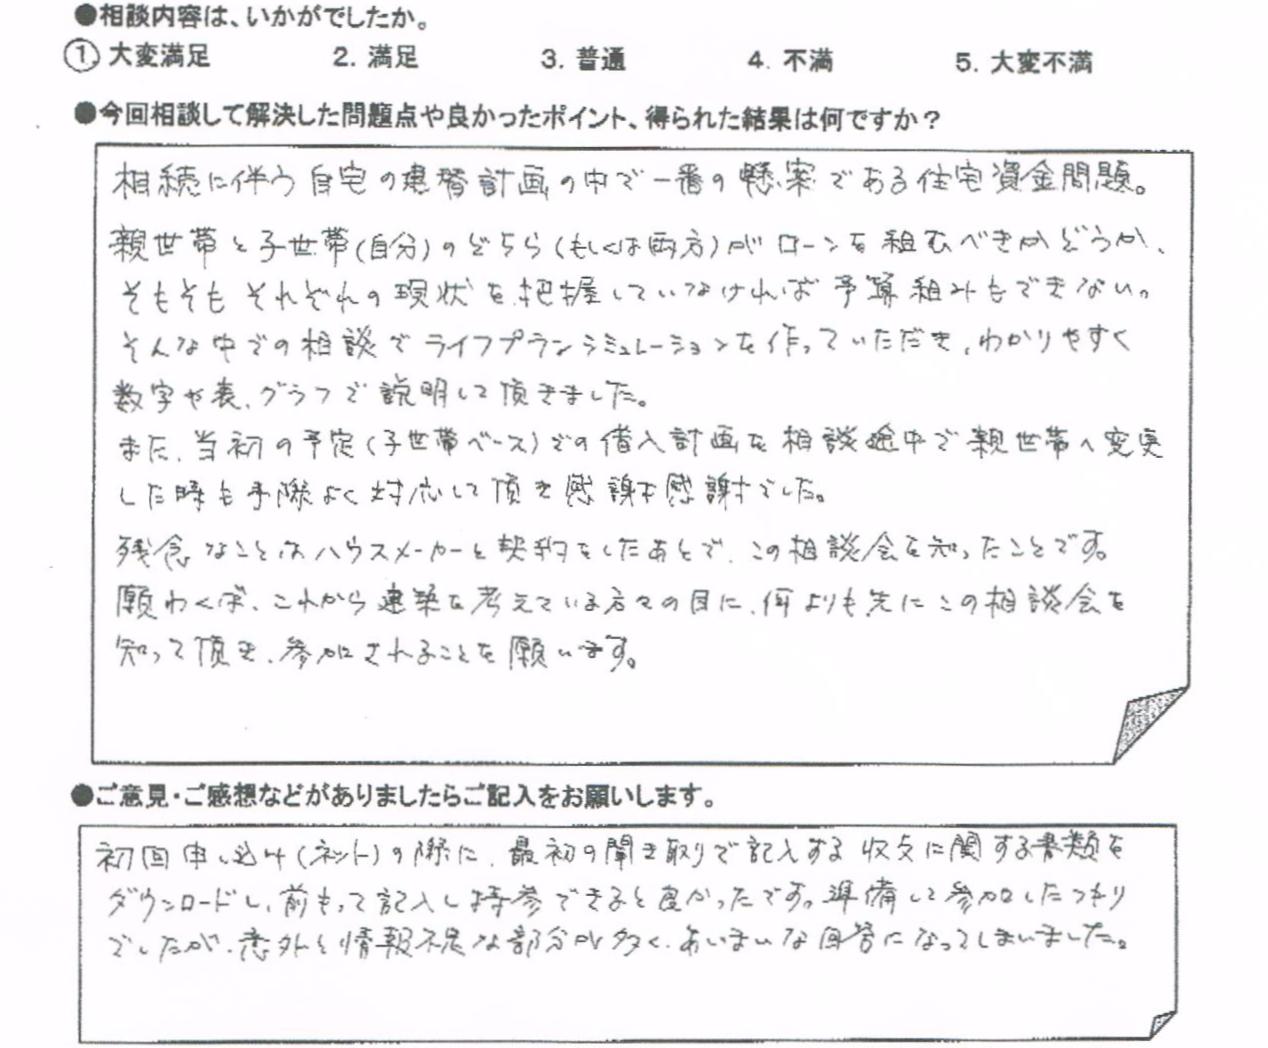 ●相談内容は、いかがでしたか。
① 大変満足 2. 満足 3. 普通 4. 不満 5. 大変不満
●今回相談して解決した問題点や良かったポイント、得られた結果は何ですか?
相続に伴う自宅の建替計画の中で一番の懸案である住宅資金問題。
親世帯と子世帯(自分)のどちら(もしくは両方)がローンを組むべきかどうか、
そもそもそれぞれの現状を把握していなければ予算組みもできない。
そんな中での相談でライフプランシミュレーションを作っていただき、わかりやすく
数字や表、グラフで説明して頂きました。
また、当初の予定(子世帯ベース)での借入計画を相談途中で親世帯へ変更
した時も手際よく対応して頂き感謝感謝でした。
残念なことはハウスメーカーと契約をしたあとで、この相談会を知ったことです。
願わくば、これから建築を考えている方々の目に、何よりも先にこの相談会を
知って頂き、参加されることを願います。
●ご意見・ご感想などがありましたらご記入をお願いします。
初回申し込み(ネット)の際に、最初の聞き取りで記入する収支に関する書類を
ダウンロードし、前もって記入し持参できると良かったです。準備して参加したつもり
でしたが、意外と情報不足な部分が多く、あいまいな回答になってしまいました。